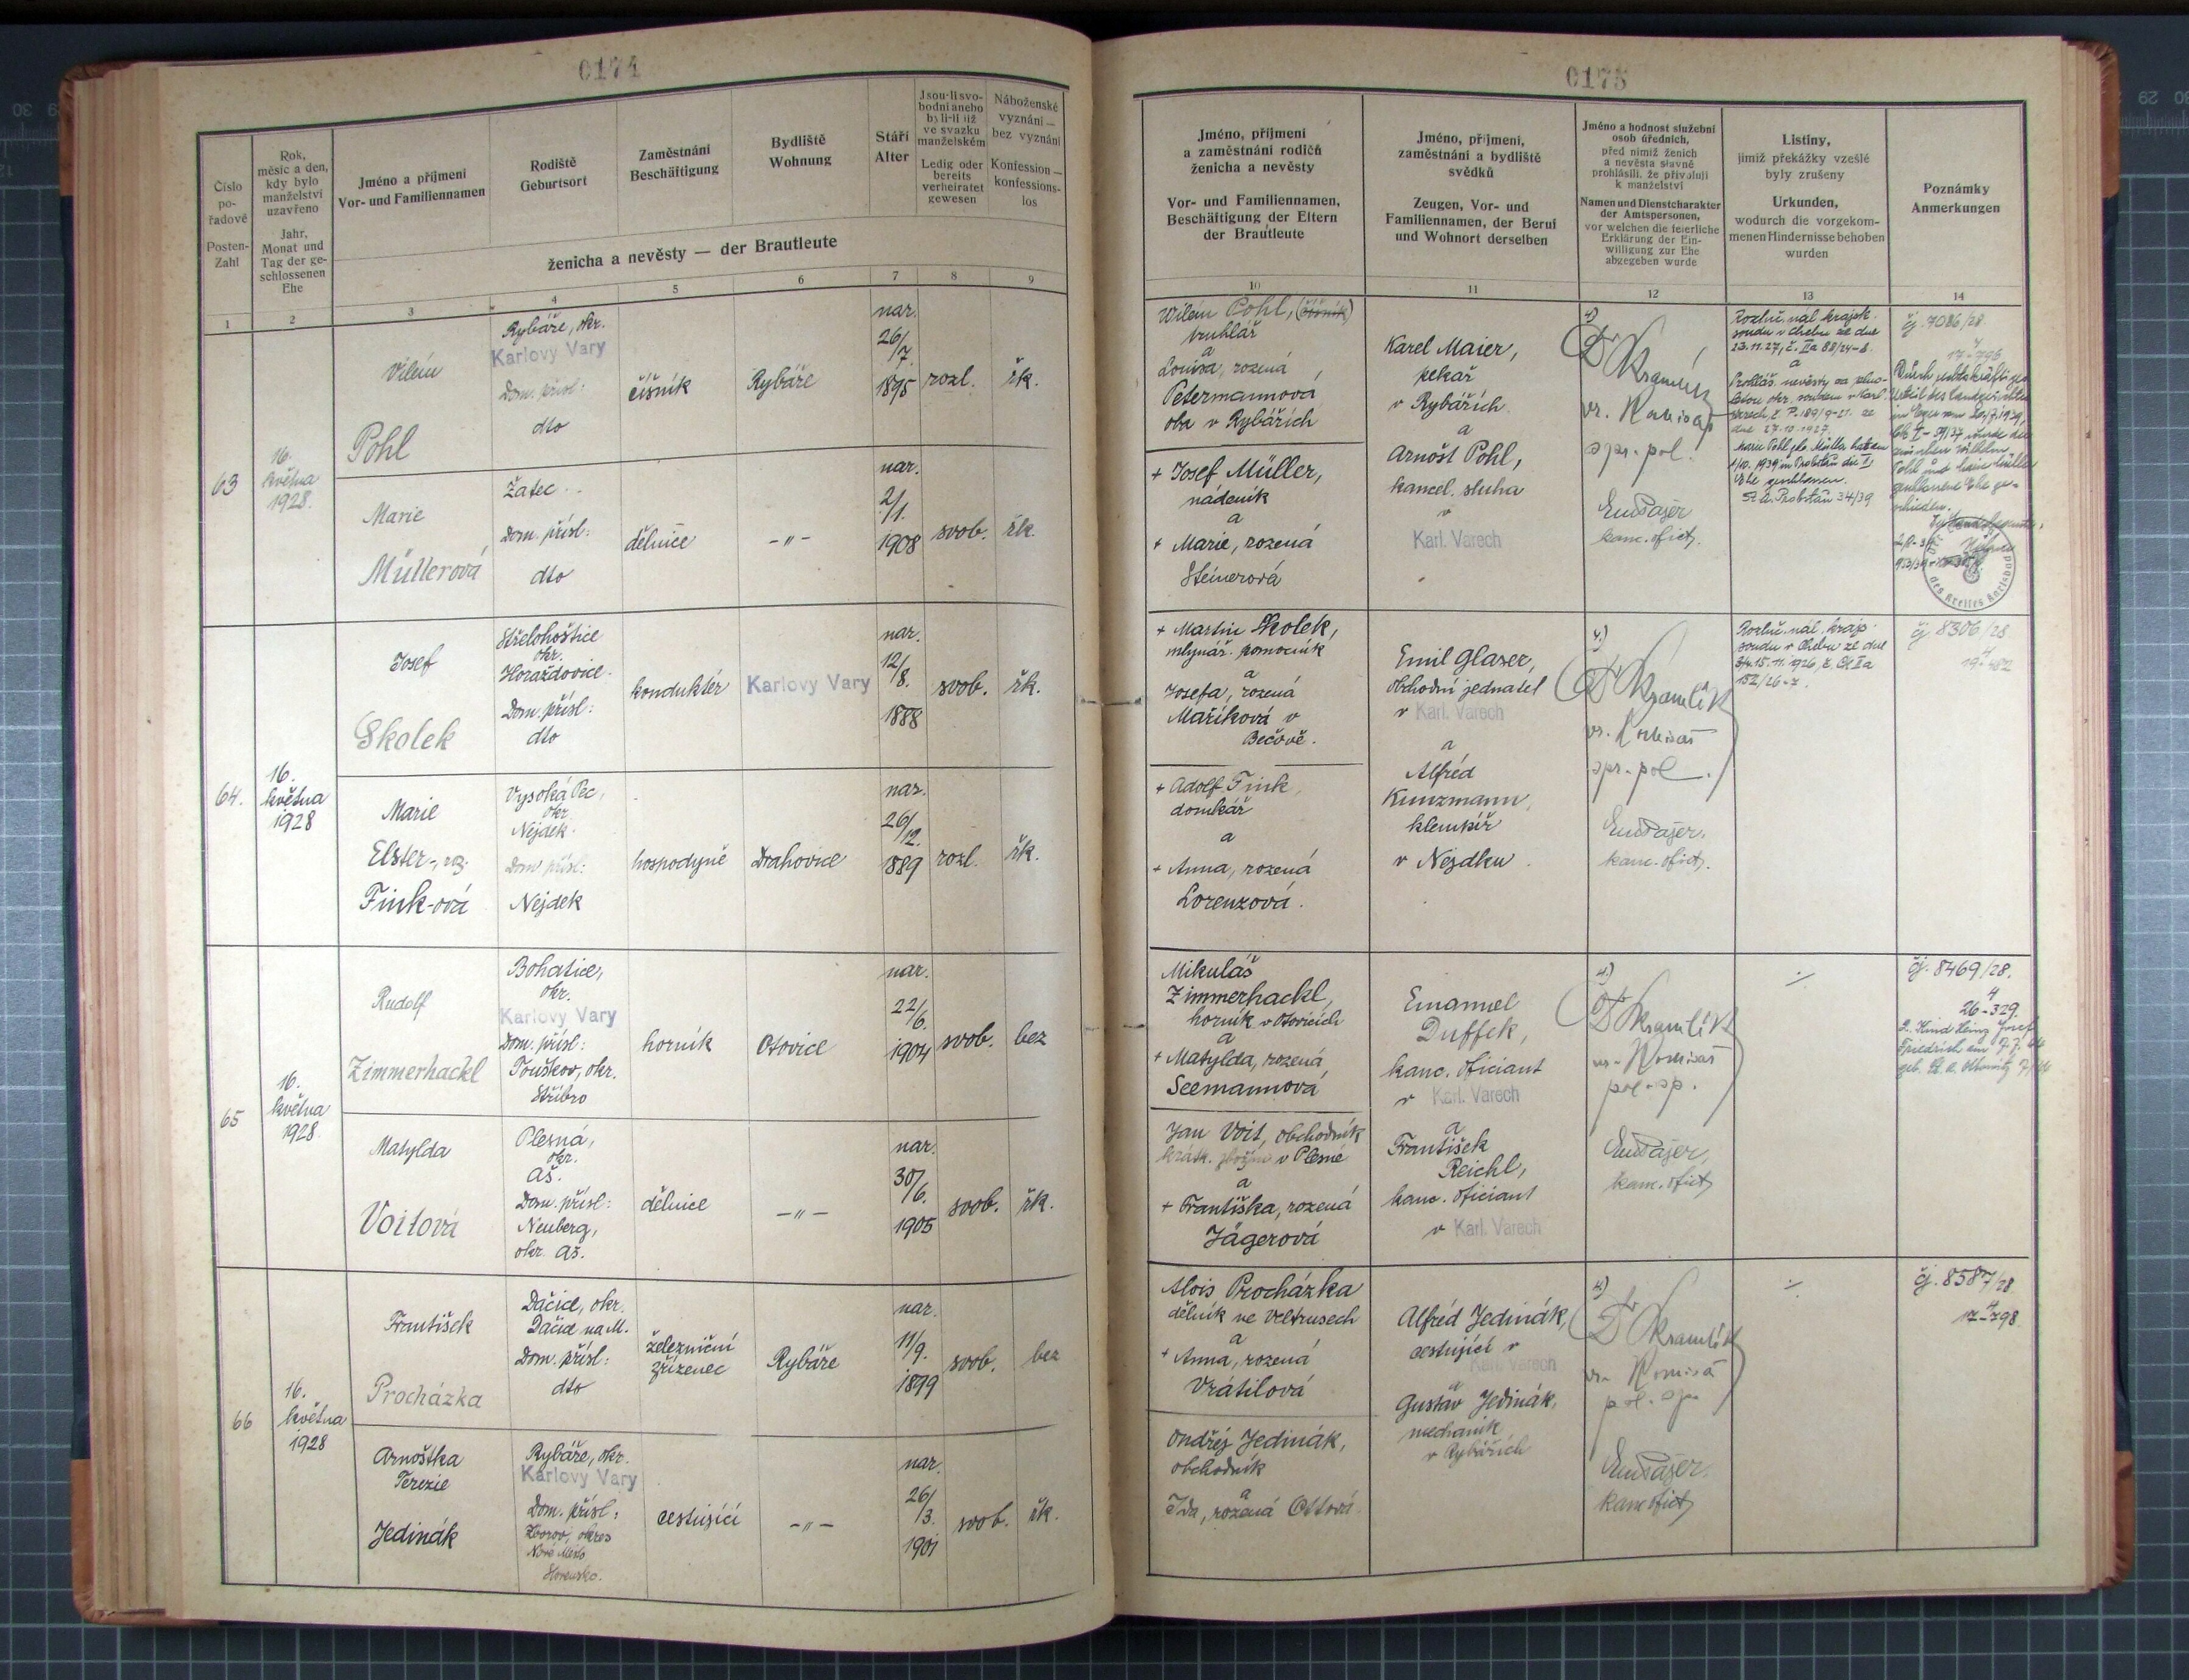 0174
Číslo
po-
řadové
Posten-
Zahl
Rok,
měsíc a den,
kdy bylo
manželství
uzavřeno
Jahr,
Monat und
Tag der ge-
schlossenen
Ehe
Jméno a příjmení
Vor- und Familiennamen
Rodiště
Geburtsort
Zaměstnání
Beschäftigung
Bydliště
Wohnung
Stáří
Alter
Jsou-li svo-
bodni aneb
byli-li již
ve svazku
manželském
Ledig oder
bereits
verheiratet
gewesen
Náboženské
vyznání —
bez vyznání
Konfession —
konfessions-
los
ženicha a nevěsty — der Brautleute
1 2 3 4 5 6 7 8 9
63
16.
května
1928.
Vilém
Pohl
Rybáře, okr.
Karlovy Vary
Dom. přísl:
dto
číšník
Rybáře
nar.
26/7.
1895
rozl.
řk.
Marie
Müllerová
Žatec
Dom. přísl:
dto
dělnice
-"-
nar.
2/1.
1908
svob.
řk.
64.
16.
května
1928
Josef
Skolek
Střelohoštice
okr.
Horažďovice.
Dom. přísl:
dto
kondukter
Karlovy Vary
nar.
12/8.
1888
svob.
řk.
Marie
Elster-, roz.
Fink-ová
Vysoká Pec,
okr.
Nejdek.
Dom přísl:
Nejdek
hospodyně
Drahovice
nar.
26/12.
1889
rozl.
řk.
65
16.
května
1928.
Rudolf
Zimmerhackl
Bohatice,
okr.
Karlovy Vary
Dom. přísl:
Touškov, okr.
Stříbro
horník
Otovice
nar.
22/6.
1904
svob.
bez
Matylda
Voitová
Plesná,
okr.
Aš.
Dom. přísl:
Neuberg,
okr. Aš.
dělnice
-"-
nar.
30/6.
1905
svob.
řk.
66
16.
května
1928
František
Procházka
Dačice, okr.
Dačice na M.
Dom. přísl:
dto
železniční
zřízenec
Rybáře
nar.
11/9.
1899
svob.
bez
Arnoštka
Terezie
Jedinák
Rybáře, okr.
Karlovy Vary
Dom. přísl:
Zborov, okres
Nové Město
Slovensko.
cestující
-"-
nar.
26/3.
1901
svob.
řk.
0175
Jméno, příjmení
a zaměstnání rodičů
ženicha a nevěsty
Vor- und Familiennamen,
Beschäftigung der Eltern
der Brautleute
Jméno, příjmení,
zaměstnání a bydliště
svědků
Zeugen, Vor- und
Familiennamen, der Beruf
und Wohnort derselben
Jméno a hodnost služební
osob úředních,
před nimiž ženich
a nevěsta slavně
prohlásili, že přivolují
k manželství
Namen und Dienstcharakter
der Amtspersonen,
vor welchen die feierliche
Erklärung der Ein-
willigung zur Ehe
abgegeben wurde
Listiny,
jimiž překážky vzešlé
byly zrušeny
Urkunden,
wodurch die vorgekom-
menen Hindernisse behoben
wurden
Poznámky
Anmerkungen
10 11 12 13 14
Vilém Pohl, (číšník)
truhlář
a
Louisa, rozená
Petermannová
oba v Rybářích
Karel Maier,
pekař
v Rybářích
a
Arnošt Pohl,
kancel. sluha
v
Karl. Varech
4)
Dr Kramlík
vr. Komisař
spr. pol.
kanc. ofict.
Rozluč. nál. krajsk.
soudu v Chebu ze dne
23.11.27, č. IIa 88/24-8.
a
Prohláš. nevěsty za plno-
letou okr. soudem v Karl.
Varech, č. P. 189/9-21. ze
dne 27.10.1927.
Marie Pohl gb. Müller hat am
1939 in Probstau die II.
Ehe geschlossen.
St. A. Probstau 34/39
čj. 7086/28
4
17-796
Durch
Urteil des Landgerichtes
in Eger vom
wurde die
zwischen Wilhelm
Pohl und Marie Müller
geschlossene Ehe ge-
schieden.
des Kreises Karlsbad
+ Josef Müller,
nádeník
a
+ Marie, rozená
Steinerová
+ Martin Skolek,
mlynář. pomocník
a
Josefa, rozená
Maříková v
Bečově.
Emil Glaser,
obchodní jednatel
v Karl. Varech
a
Alfréd
Kunzmann,
klempíř
v Nejdku.
4.)
Dr Kramlík
vr. Komisař
spr. pol.
kanc. ofict.
Rozluč. nál. krajs.
soudu v Chebu ze dne
15.11.1926, č. Ck Ia
152/26-7.
čj 8306/28
4
19-482
+ Adolf Fink,
domkář
a
+ Anna, rozená
Lorenzová.
Mikuláš
Zimmerhackl,
horník v Otovicích
a
+ Matylda, rozená
Seemannová
Emanuel
Duffek,
kanc. oficiant
v Karl. Varech
a
František
Reichl,
kanc. oficiant
v Karl. Varech
4.)
Dr Kramlík
vr. Komisař
pol. sp.
kanc. ofict.
./.
čj. 8469/28.
4
26-329.
2. Kind Heinz Josef
Friedrich am 7.7.44
geb. St. A. Ottowitz
Jan Voit, obchodník
krátk. zbožím v Plesné
a
+ Františka, rozená
Jägerová
Alois Procházka
dělník ve Veltrusech
a
+ Anna, rozená
Vrátilová
Alfréd Jedinák,
cestující v
Karl. Varech
a
Gustav Jedinák,
mechanik
v Rybářích
4)
Dr Kramlík
vr. Komisař
pol. sp.
kanc. ofict.
./.
čj. 8587/28
4
17-798
Ondřej Jedinák,
obchodník
a
Ida, rozená Ottová